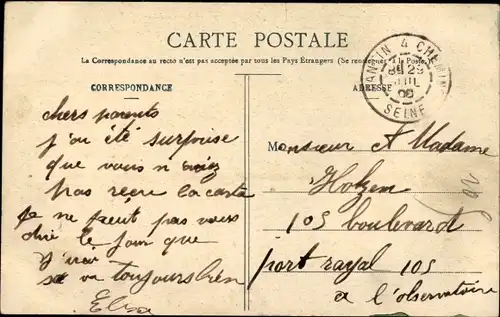 CARTE POSTALE
La Correspondance au recto n'est pas acceptée par tous les Pays Étrangers (Se renseigner à la Poste.)
CORRESPONDANCE
ADRESSE
PANTIN 4 CHEMINS
SEINE
chers parents
j'ai été surprise
que vous n'aviez
pas reçu la carte
je ne peut pas vous
dire le jour que
j'irai
sa va toujours bien
Elisa
Monsieur et Madame
105 boulevard
port royal 105
a l'observatoire